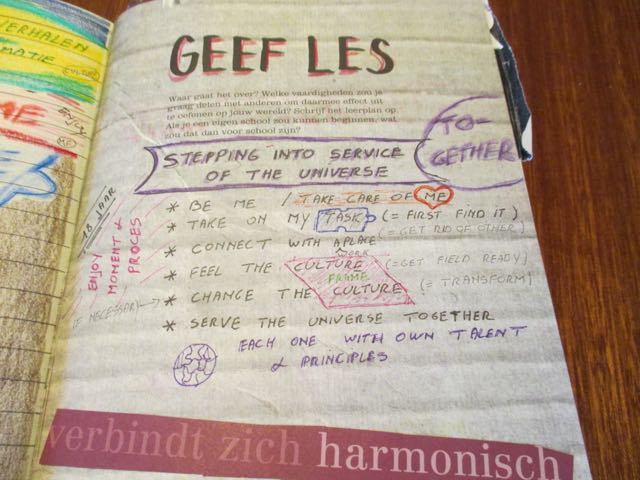 VERHALEN
MATIE
ENJOY
ME
GEEF LES
Waar gaat het over? Welke vaardigheden zou je
graag delen met anderen om daarmee effect uit
te oefenen op jouw wereld? Schrijf het leerplan op.
Als je een eigen school zou kunnen beginnen, wat
zou dat dan voor school zijn?
TO-
GETHER
STEPPING INTO SERVICE
OF THE UNIVERSE
* BE ME / TAKE CARE OF ME
* TAKE ON MY TASK (= FIRST FIND IT)
(= GET RID OF OTHER)
* CONNECT WITH A PLACE
WORK
* FEEL THE CULTURE (= GET FIELD READY)
FRAME
* CHANGE THE CULTURE (= TRANSFORM)
* SERVE THE UNIVERSE TOGETHER
EACH ONE WITH OWN TALENT
& PRINCIPLES
18 JAAR
ENJOY
MOMENT &
PROCES
IF NECESSARY
verbindt zich harmonisch